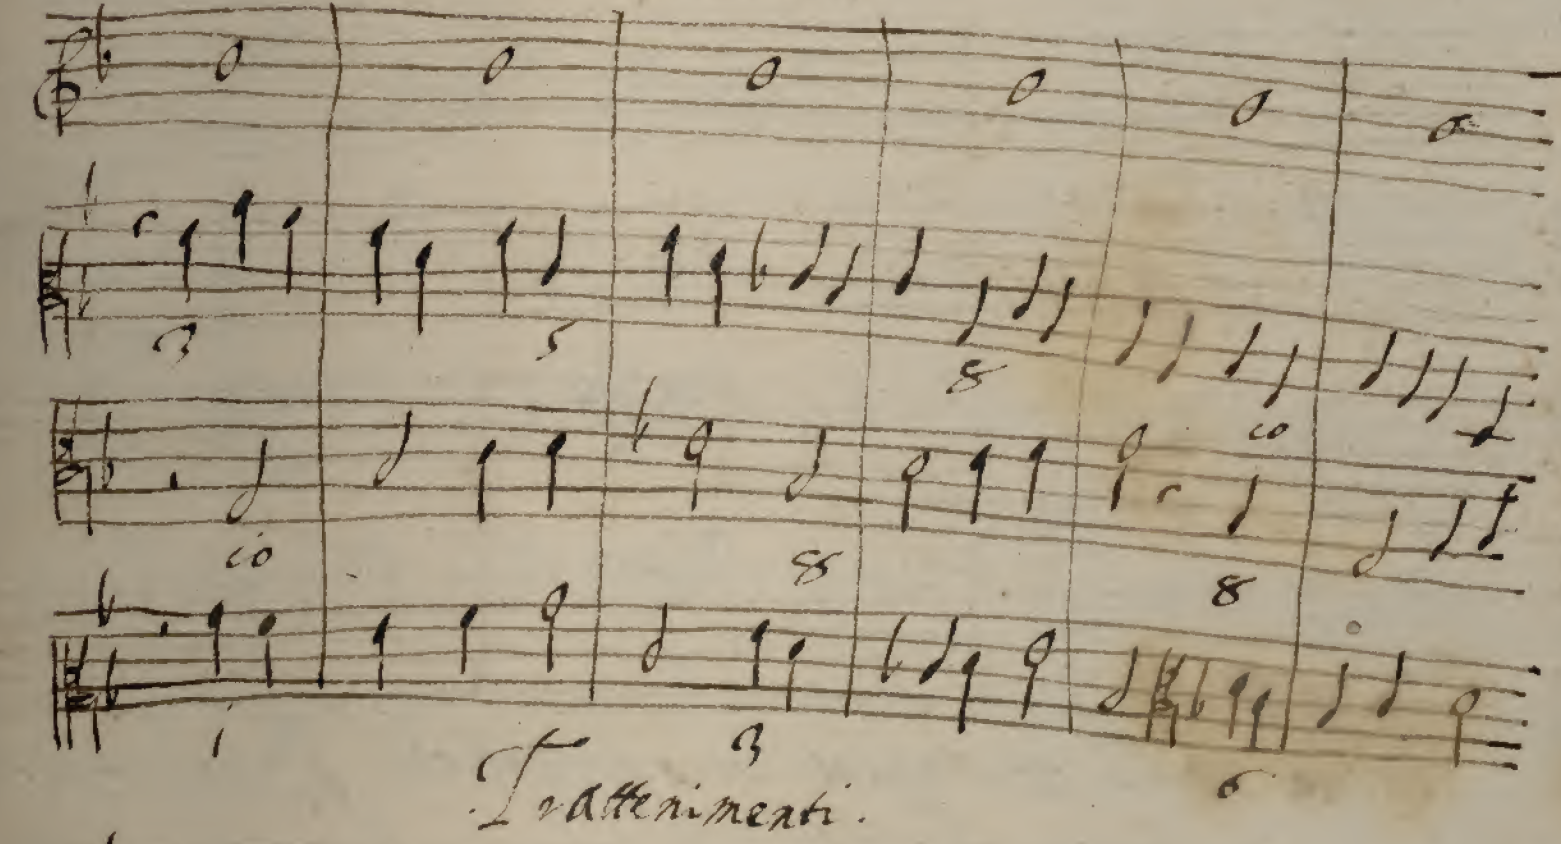 3 5 8 10
10 8 8
1 3 6
Trattenimenti.